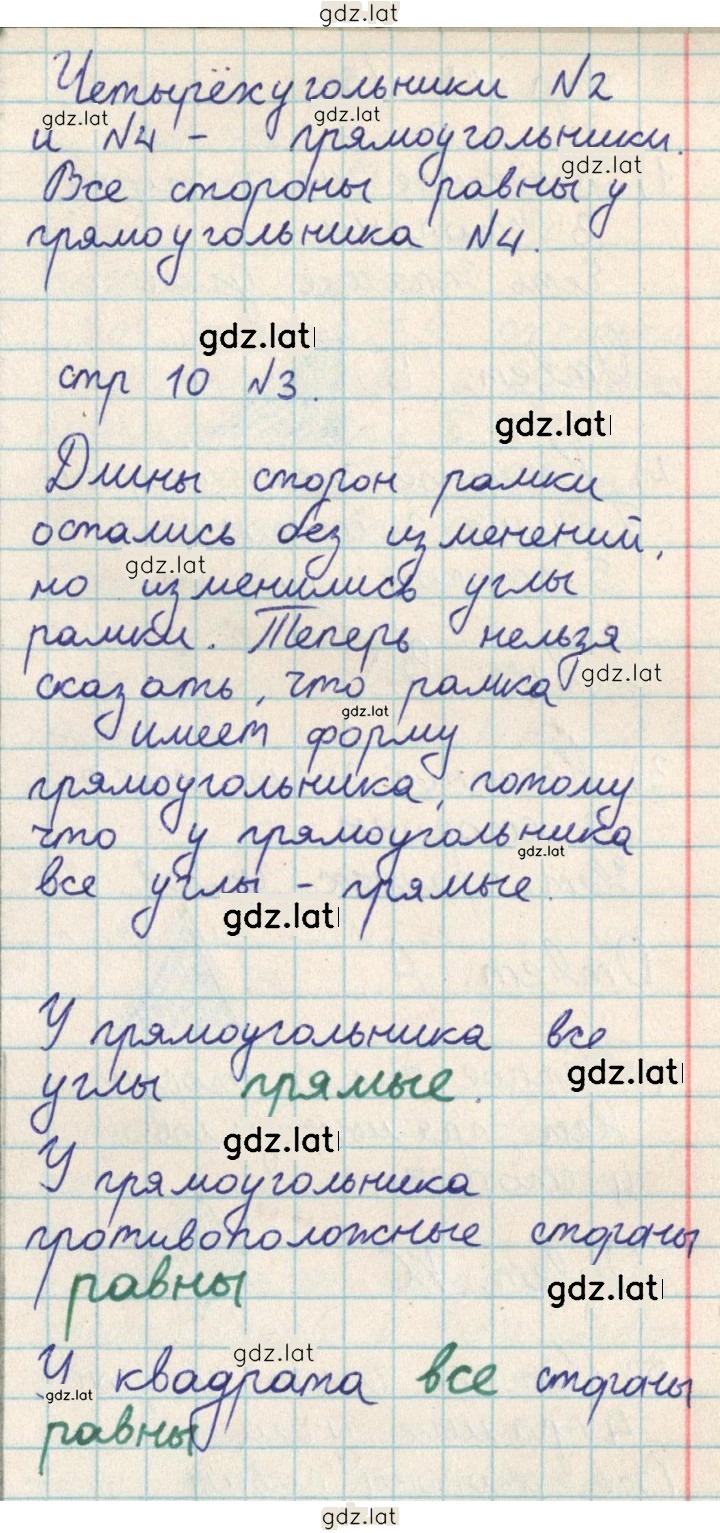 gdz.lat
Четырёхугольники №2
gdz.lat gdz.lat
и №4 - прямоугольники.
gdz.lat
Все стороны равны у
прямоугольника №4.
gdz.lat
стр 10 №3.
gdz.lat
Длины сторон рамки
остались без изменений,
gdz.lat
но изменились углы
рамки. Теперь нельзя
gdz.lat
сказать, что рамка
gdz.lat
имеет форму
прямоугольника, потому
что у прямоугольника
gdz.lat
все углы - прямые.
gdz.lat
У прямоугольника все
gdz.lat
углы прямые.
gdz.lat
У прямоугольника
противоположные стораны
равны
gdz.lat
gdz.lat
У квадрата все стораны
gdz.lat
равны
gdz.lat